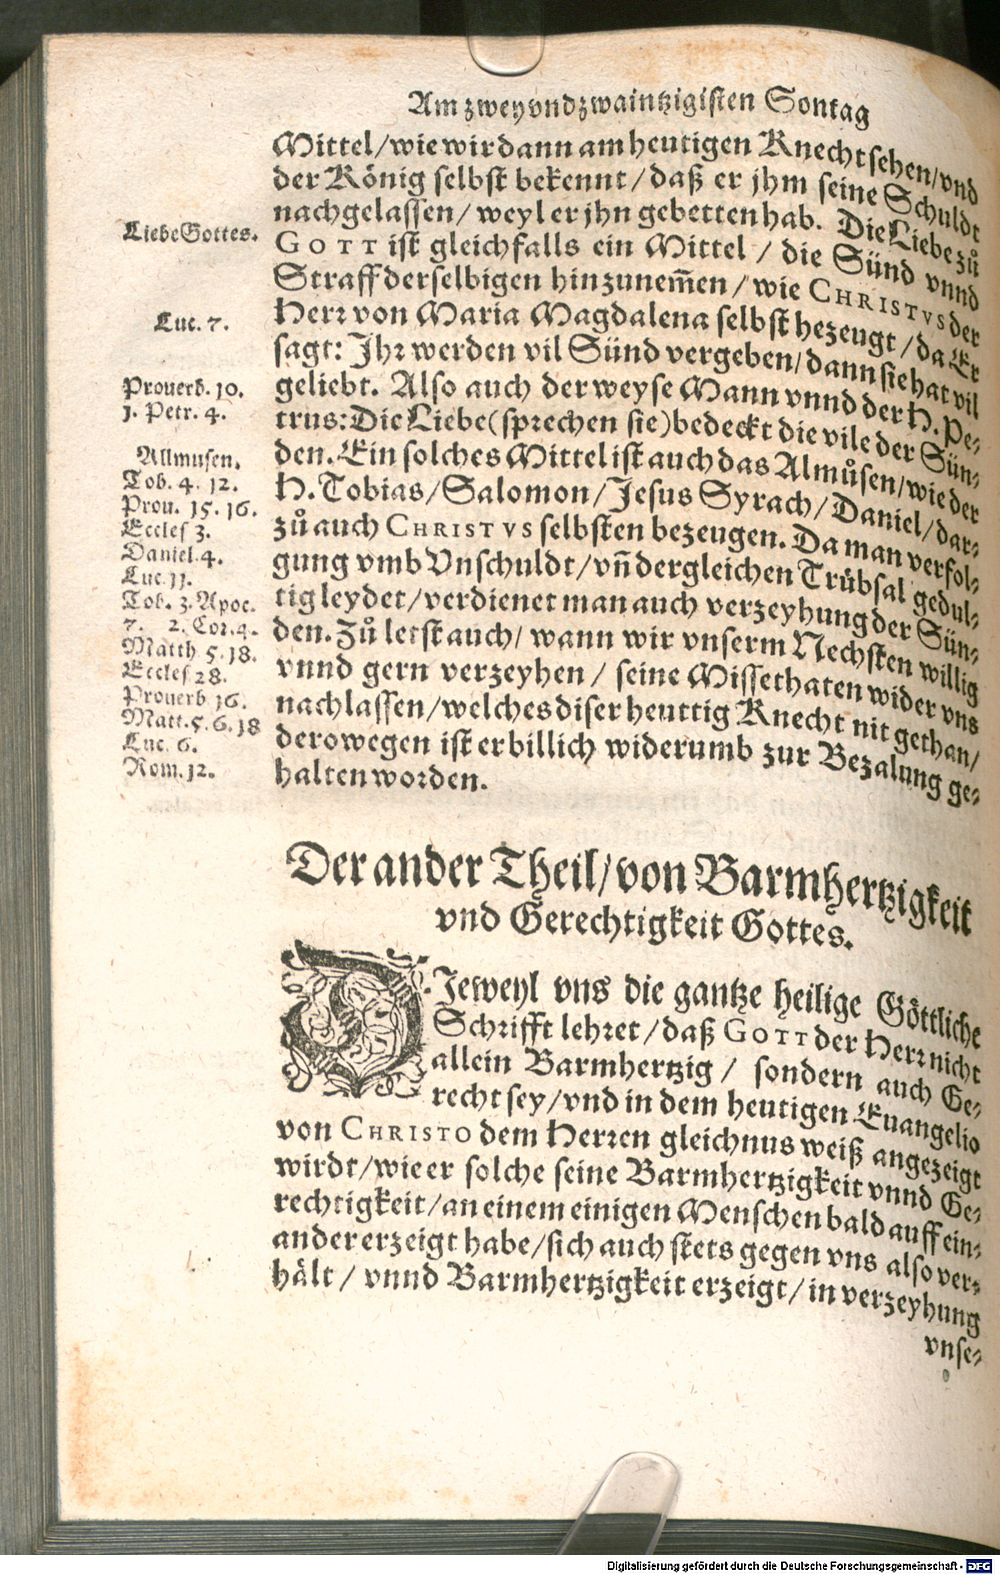 Am zwey vnd zwaintzigisten Sontag
Mittel/ wie wir dann am heutigen Knecht sehen/ vnd
der König selbst bekennt/ daß er jhm seine Schuldt
nachgelassen/ weyl er jhn gebetten hab. Die Liebe zů
GOTT ist gleichfalls ein Mittel/ die Sünd vnnd
Straff derselbigen hinzunem̃en/ wie CHRISTVS der
Herr von Maria Magdalena selbst bezeugt/ da Er
sagt: Ihr werden vil Sünd vergeben/ dann sie hat vil
geliebt. Also auch der weyse Mann vnnd der H. Pe-
trus: Die Liebe (sprechen sie) bedeckt die vile der Sün-
den. Ein solches Mittel ist auch das Almůsen/ wie der
H. Tobias/ Salomon/ Jesus Syrach/ Daniel/ dar-
zů auch CHRISTVS selbsten bezeugen. Da man verfol-
gung vmb Vnschuldt/ vñ dergleichen Trübsal gedul-
tig leydet/ verdienet man auch verzeyhung der Sün-
den. Zů letst auch/ wann wir vnserm Nechsten willig
vnnd gern verzeyhen/ seine Missethaten wider vns
nachlassen/ welches diser heuttig Knecht nit gethan/
derowegen ist er billich widerumb zur Bezalung ge-
halten worden.
Liebe Gottes.
Luc. 7.
Prouerb. 10.
1. Petr. 4.
Allmusen.
Tob. 4. 12.
Prou. 15. 16.
Eccles 3.
Daniel. 4.
Luc. 11.
Tob. 3. Apoc.
7. 2. Cor. 4.
Matth 5. 18.
Eccles 28.
Prouerb 16.
Matt. 5. 6. 18
Luc. 6.
Rom. 12.
Der ander Theil/ von Barmhertzigkeit
vnd Gerechtigkeit Gottes.
DJeweyl vns die gantze heilige Göttliche
Schrifft lehret/ daß GOTT der Herr nicht
allein Barmhertzig/ sondern auch Ge-
recht sey/ vnd in dem heutigen Euangelio
von CHRISTO dem Herren gleichnus weiß angezeigt
wirdt/ wie er solche seine Barmhertzigkeit vnnd Ge-
rechtigkeit/ an einem einigen Menschen bald auff ein-
ander erzeigt habe/ sich auch stets gegen vns also ver-
hält/ vnnd Barmhertzigkeit erzeigt/ in verzeyhung
vnse-
Digitalisierung gefördert durch die Deutsche Forschungsgemeinschaft - DFG